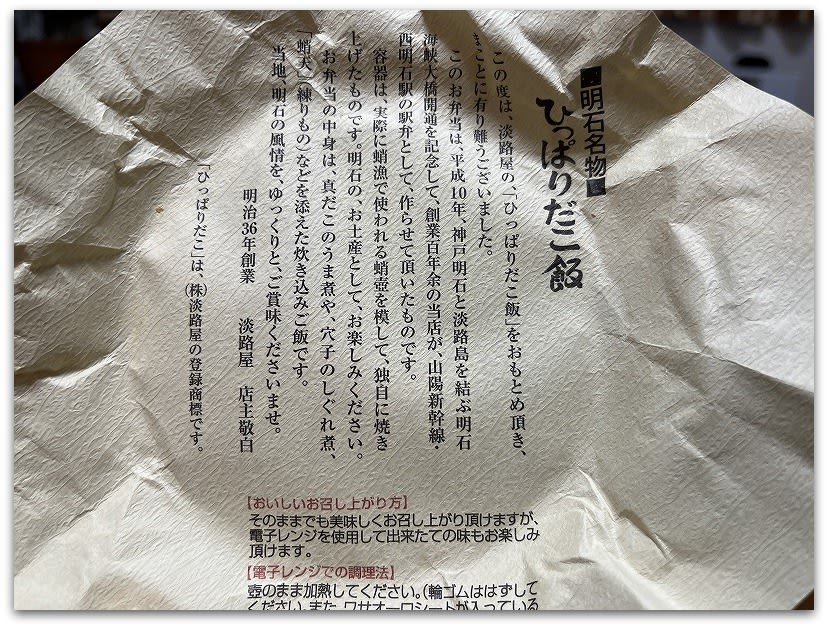 ■明石名物■
ひっぱりだこ飯
この度は、淡路屋の、「ひっぱりだこ飯」をおもとめ頂き、
まことに有り難うございました。
このお弁当は、平成10年、神戸明石と淡路島を結ぶ明石
海峡大橋開通を記念して、創業百年余の当店が、山陽新幹線・
西明石駅の駅弁として、作らせて頂いたものです。
容器は、実際に蛸漁で使われる蛸壺を模して、独自に焼き
上げたものです。明石の、お土産として、お楽しみください。
お弁当の中身は、真だこのうま煮や、穴子のしぐれ煮、
「蛸天」(練りもの)などを添えた炊き込みご飯です。
当地、明石の風情を、ゆっくりと、ご賞味くださいませ。
明治36年創業 淡路屋 店主敬白
「ひっぱりだこ」は、(株)淡路屋の登録商標です。
【おいしいお召し上がり方】
そのままでも美味しくお召し上がり頂けますが、
電子レンジを使用して出来たての味もお楽しみ
頂けます。
【電子レンジでの調理法】
壺のまま加熱してください。(輪ゴムははずして
ください。また、ワサオーロシートが入っている